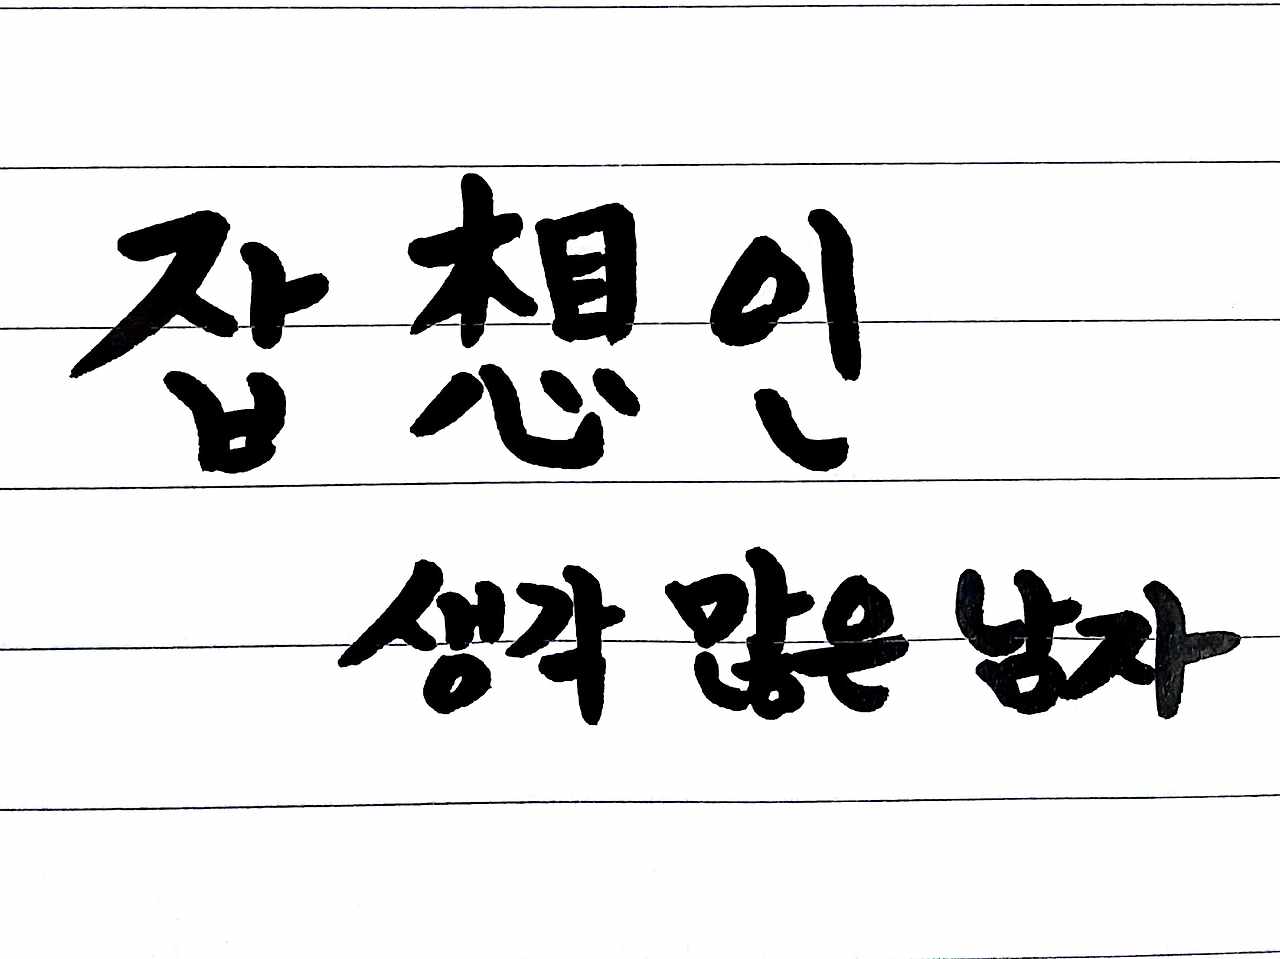 잡 想 인
생각 많은 남자